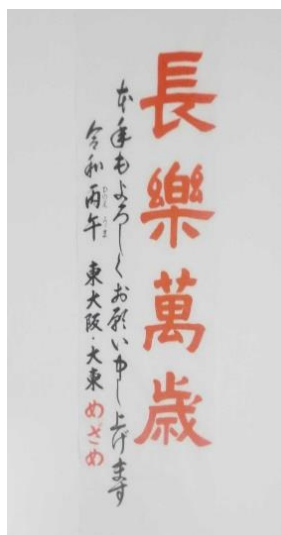 長樂萬歳
本年もよろしくお願い申し上げます
令和丙午 東大阪・大東 めざめ
ひのえ うま